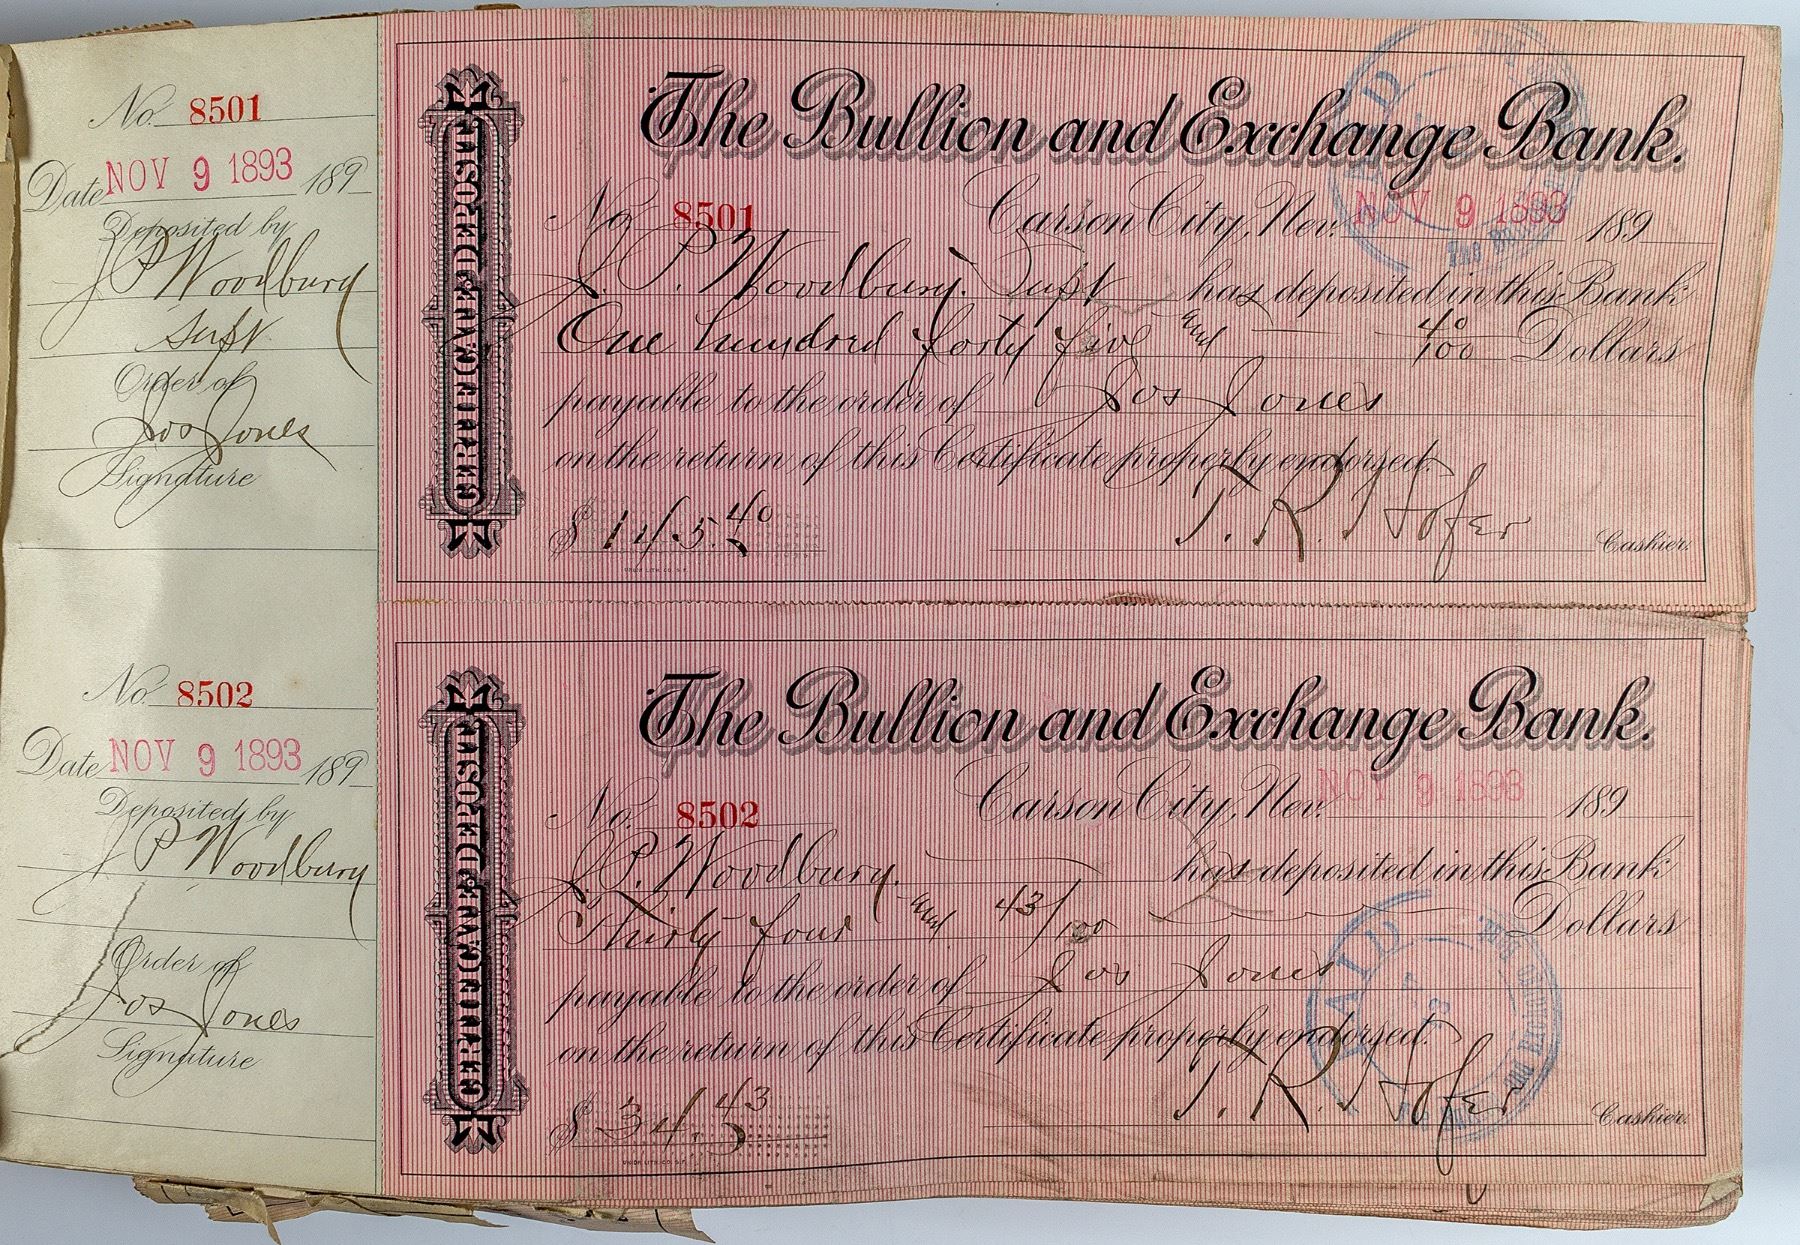 No. 8501
Date NOV 9 1893 189
Deposited by
J P Woodbury
Supt
Order of
Jos Jones
Signature
CERTIFICATE OF DEPOSIT
The Bullion and Exchange Bank.
No. 8501 Carson City, Nev. NOV 9 1893 189
J. P. Woodbury. Supt has deposited in this Bank
One hundred forty five and 40/100 Dollars
payable to the order of Jos Jones
on the return of this Certificate properly endorsed.
$ 145.40 T. R. Hofer Cashier.
UNION LITH. CO. S.F.
No. 8502
Date NOV 9 1893 189
Deposited by
J. P Woodbury
Order of
Jos Jones
Signature
The Bullion and Exchange Bank.
No. 8502 Carson City, Nev. NOV 9 1893 189
J. P. Woodbury. has deposited in this Bank
Thirty four and 43/100 Dollars
payable to the order of Jos Jones
on the return of this Certificate properly endorsed.
PAID
$ 34.43 T. R. Hofer Cashier.
UNION LITH. CO. S.F.